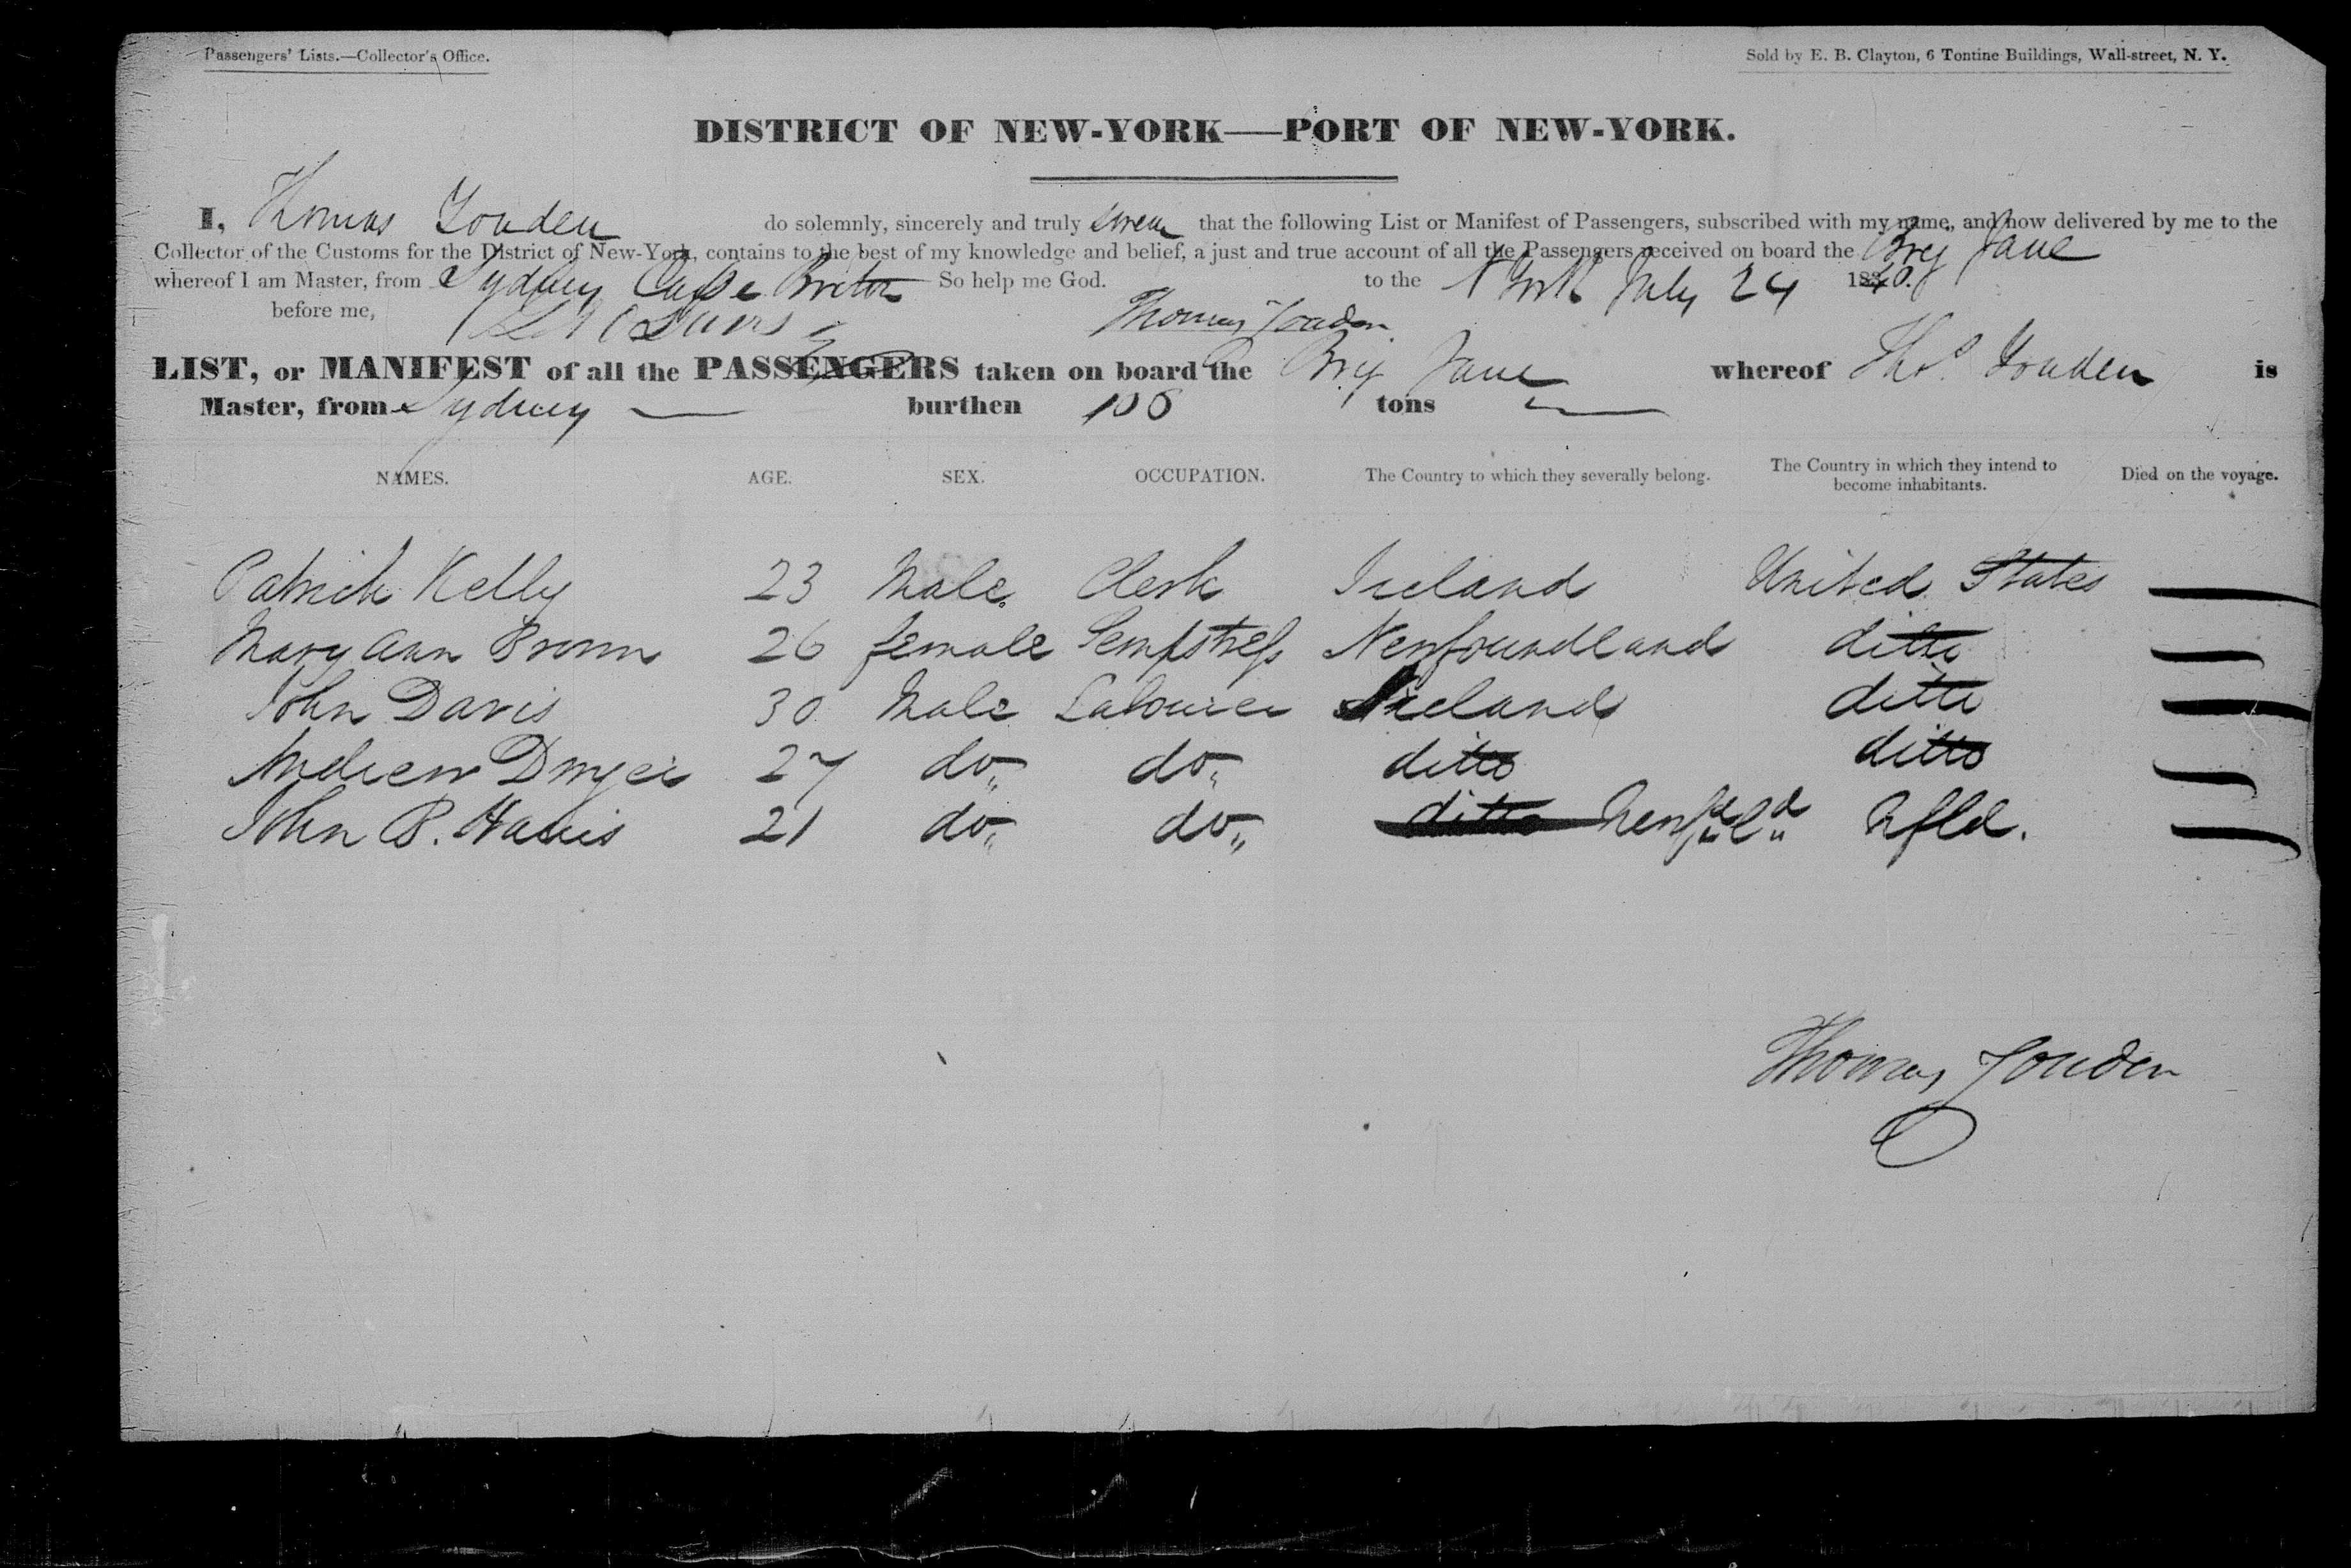 Passengers' Lists.—Collector's Office.
Sold by E. B. Clayton, 6 Tontine Buildings, Wall-street, N. Y.
DISTRICT OF NEW-YORK—PORT OF NEW-YORK.
I, Thomas Youden do solemnly, sincerely and truly swear that the following List or Manifest of Passengers, subscribed with my name, and now delivered by me to the
Collector of the Customs for the District of New-York, contains to the best of my knowledge and belief, a just and true account of all the Passengers received on board the Brig Jane
whereof I am Master, from Sydney Cape Breton to the N York July 24 1840.
So help me God.
before me, Thomas Youden
LIST, or MANIFEST of all the PASSENGERS taken on board the Brig Jane whereof Thos. Youden is
Master, from Sydney burthen 108 tons
NAMES. AGE. SEX. OCCUPATION. The Country to which they severally belong. The Country in which they intend to become inhabitants. Died on the voyage.
Patrick Kelly 23 Male Clerk Ireland United States
Mary Ann Brown 26 female Sempstress Newfoundland ditto
John Davis 30 Male Labourer Ireland ditto
Andrew Dwyer 27 do do ditto ditto
John B. Harris 21 do do ditto Newfdld Nfld.
Thomas Youden